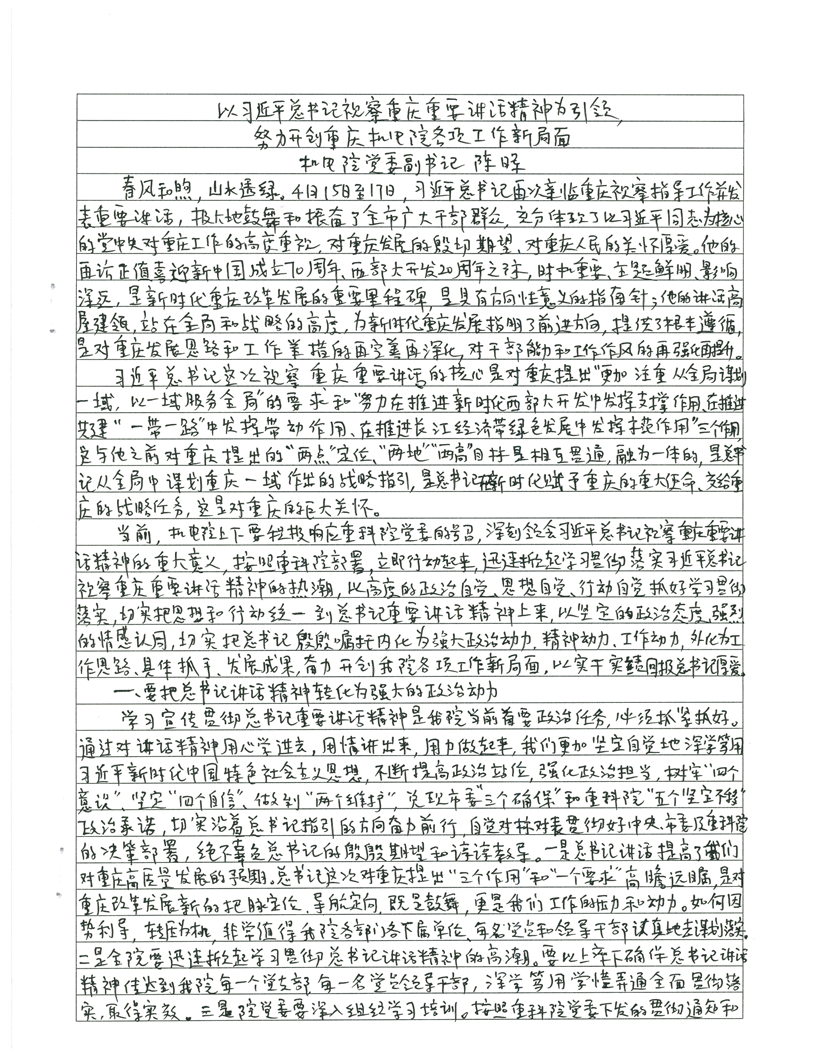 以习近平总书记视察重庆重要讲话精神为引领，
努力开创重庆机电院各项工作新局面
机电院党委副书记 陈
春风和煦，山水透绿。4月15日至17日，习近平总书记再次亲临重庆视察指导工作并发
表重要讲话，极大地鼓舞和振奋了全市广大干部群众，充分体现了以习近平同志为核心
的党中央对重庆工作的高度重视、对重庆发展的殷切期望、对重庆人民的关怀厚爱。他的
再访正值喜迎新中国成立70周年、西部大开发20周年之际，时机重要、主题鲜明、影响
深远，是新时代重庆改革发展的重要里程碑，是具有方向性意义的指南针；他的讲话高
屋建瓴，站在全局和战略的高度，为新时代重庆发展指明了前进方向，提供了根本遵循，
是对重庆发展思路和工作举措的再完善再深化，对干部能力和工作作风的再强化再提升。
习近平总书记这次视察重庆重要讲话的核心是对重庆提出“更加注重从全局谋划
一域，以一域服务全局”的要求和“努力在推进新时代西部大开发中发挥支撑作用、在推进
共建“一带一路”中发挥带动作用、在推进长江经济带绿色发展中发挥示范作用”三个作用，
这与他之前对重庆提出的“两点”定位、“两地”“两高”目标是相互贯通，融为一体的，是总书
记从全局中谋划重庆一域作出的战略指引，是总书记在新时代赋予重庆的重大使命、交给重
庆的战略任务，这是对重庆的巨大关怀。
当前，机电院上下要积极响应重科院党委的号召，深刻领会习近平总书记视察重庆重要讲
话精神的重大意义，按照重科院部署，立即行动起来，迅速掀起学习贯彻落实习近平总书记
视察重庆重要讲话精神的热潮，以高度的政治自觉、思想自觉、行动自觉抓好学习贯彻
落实，切实把思想和行动统一到总书记重要讲话精神上来，以坚定的政治态度、强烈
的情感认同，切实把总书记殷殷嘱托内化为强大政治动力、精神动力、工作动力，外化为工
作思路、具体抓手、发展成果，奋力开创我院各项工作新局面，以实干实绩回报总书记厚爱。
一、要把总书记讲话精神转化为强大的政治动力
学习宣传贯彻总书记重要讲话精神是我院当前首要政治任务，必须抓紧抓好。
通过对讲话精神用心学进去，用情讲出来，用力做起来，我们更加坚定自觉地深学笃用
习近平新时代中国特色社会主义思想，不断提高政治站位，强化政治担当，树牢“四个
意识”、坚定“四个自信”、做到“两个维护”，兑现市委“三个确保”和重科院“五个坚定不移”
政治承诺，切实沿着总书记指引的方向奋力前行，自觉对标对表贯彻好中央、市委及重科院
的决策部署，绝不辜负总书记的殷殷期望和谆谆教导。一是总书记讲话提高了我们
对重庆高质量发展的预期。总书记这次对重庆提出“三个作用”和“一个要求”高瞻远瞩，是对
重庆改革发展新的把脉定位、导航定向，既是鼓舞，更是我们工作的压力和动力。如何因
势利导，转压为机，非常值得我院各部门各下属单位、每名党员和领导干部认真地去谋划落实。
二是全院要迅速掀起学习贯彻总书记讲话精神的高潮。要以上率下确保总书记讲话
精神传达到我院每一个党支部每一名党员领导干部，深学笃用学懂弄通全面贯彻落
实，取得实效。三是院党委要深入组织学习培训。按照重科院党委下发的贯彻通知和